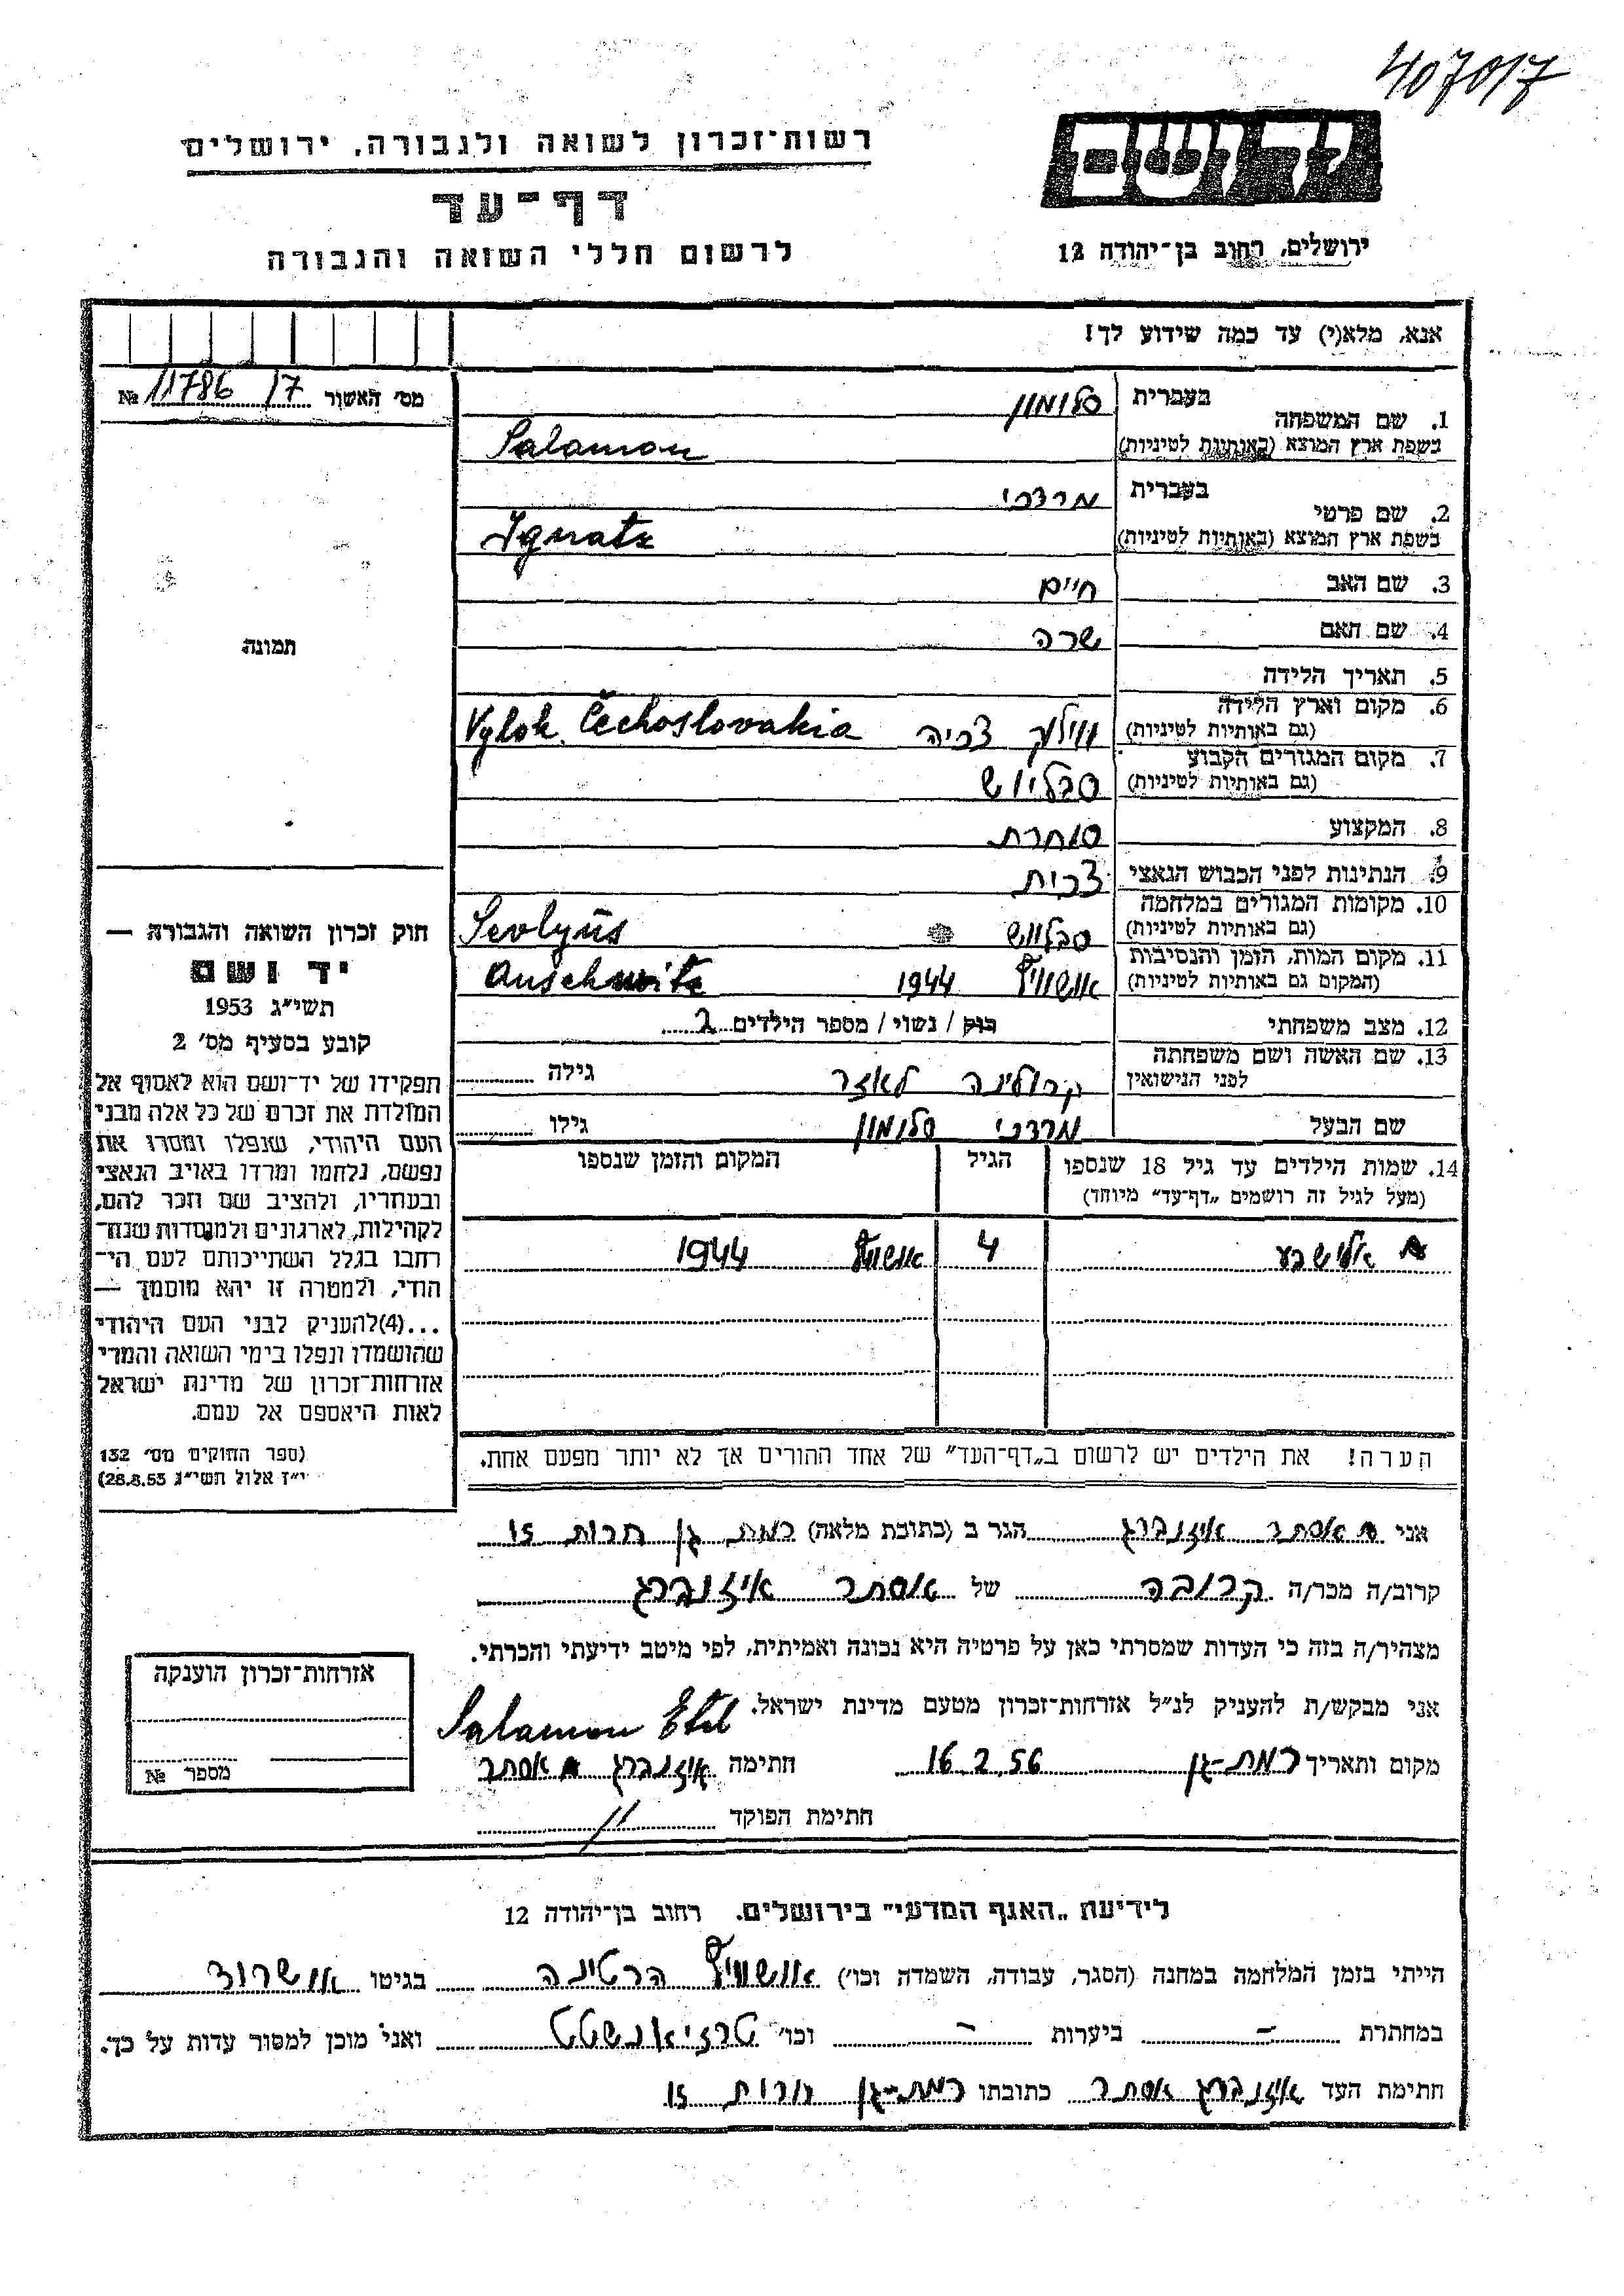 407017
יד ושם
רשות־זכרון לשואה ולגבורה, ירושלים
דף־עד
לרשום חללי השואה והגבורה
ירושלים, רחוב בן־יהודה 12
אנא, מלא(י) עד כמה שידוע לך!
מס׳ האשור 11786/7 №
1. שם המשפחה בעברית סלומון
בשפת ארץ המוצא (באותיות לטיניות) Salamon
2. שם פרטי בעברית מרדכי
בשפת ארץ המוצא (באותיות לטיניות) Ignatz
3. שם האב חיים
4. שם האם שרה
5. תאריך הלידה
6. מקום וארץ הלידה (גם באותיות לטיניות) ווילוק צכיה Vylok Čechoslovakia
7. מקום המגורים הקבוע (גם באותיות לטיניות) סבליוש
8. המקצוע סוחרת
9. הנתינות לפני הכבוש הנאצי צכית
10. מקומות המגורים במלחמה (גם באותיות לטיניות) סבליוש Sevlyüs
11. מקום המות, הזמן והנסיבות (המקום גם באותיות לטיניות) אושוויץ 1944 Auschwitz
12. מצב משפחתי רוק / נשוי / מספר הילדים 2
13. שם האשה ושם משפחתה לפני הנישואין קרולינה לאזר גילה
שם הבעל מרדכי סלומון גילו
14. שמות הילדים עד גיל 18 שנספו הגיל המקום והזמן שנספו
(מעל לגיל זה רושמים „דף־עד״ מיוחד)
אלישבע 4 אושוויץ 1944
הערה! את הילדים יש לרשום ב„דף־העד״ של אחד ההורים אך לא יותר מפעם אחת.
תמונה
חוק זכרון השואה והגבורה —
יד ושם
תשי״ג 1953
קובע בסעיף מס׳ 2
תפקידו של יד־ושם הוא לאסוף אל
המולדת את זכרם של כל אלה מבני
העם היהודי, שנפלו ומסרו את
נפשם, נלחמו ומרדו באויב הנאצי
ובעוזריו, ולהציב שם וזכר להם,
לקהילות, לארגונים ולמוסדות שנח־
רבו בגלל השתייכותם לעם הי־
הודי, ולמטרה זו יהא מוסמך —
...(4)להעניק לבני העם היהודי
שהושמדו ונפלו בימי השואה והמרי
אזרחות־זכרון של מדינת ישראל
לאות היאספם אל עמם.
(ספר החוקים מס׳ 132
י״ז אלול תשי״ג 28.8.53)
אני אסתר איזנברג הגר ב (כתובת מלאה) רמת גן חרות 15
קרוב/ה מכר/ה קרובה של אסתר איזנברג
מצהיר/ה בזה כי העדות שמסרתי כאן על פרטיה היא נכונה ואמיתית, לפי מיטב ידיעתי והכרתי.
אני מבקש/ת להעניק לנ״ל אזרחות־זכרון מטעם מדינת ישראל. Salamon Etel
מקום ותאריך רמת-גן 16.2.56 חתימה איזנברג אסתר
חתימת הפוקד
אזרחות־זכרון הוענקה
מספר №
לידיעת „האגף המדעי״ בירושלים. רחוב בן־יהודה 12
הייתי בזמן המלחמה במחנה (הסגר, עבודה, השמדה וכו׳) אושוויץ בגיטו
במחתרת – ביערות – וכו׳ טרזיאנשטט ואני מוכן למסור עדות על כך.
חתימת העד איזנברג אסתר כתובתו רמת-גן חרות 15